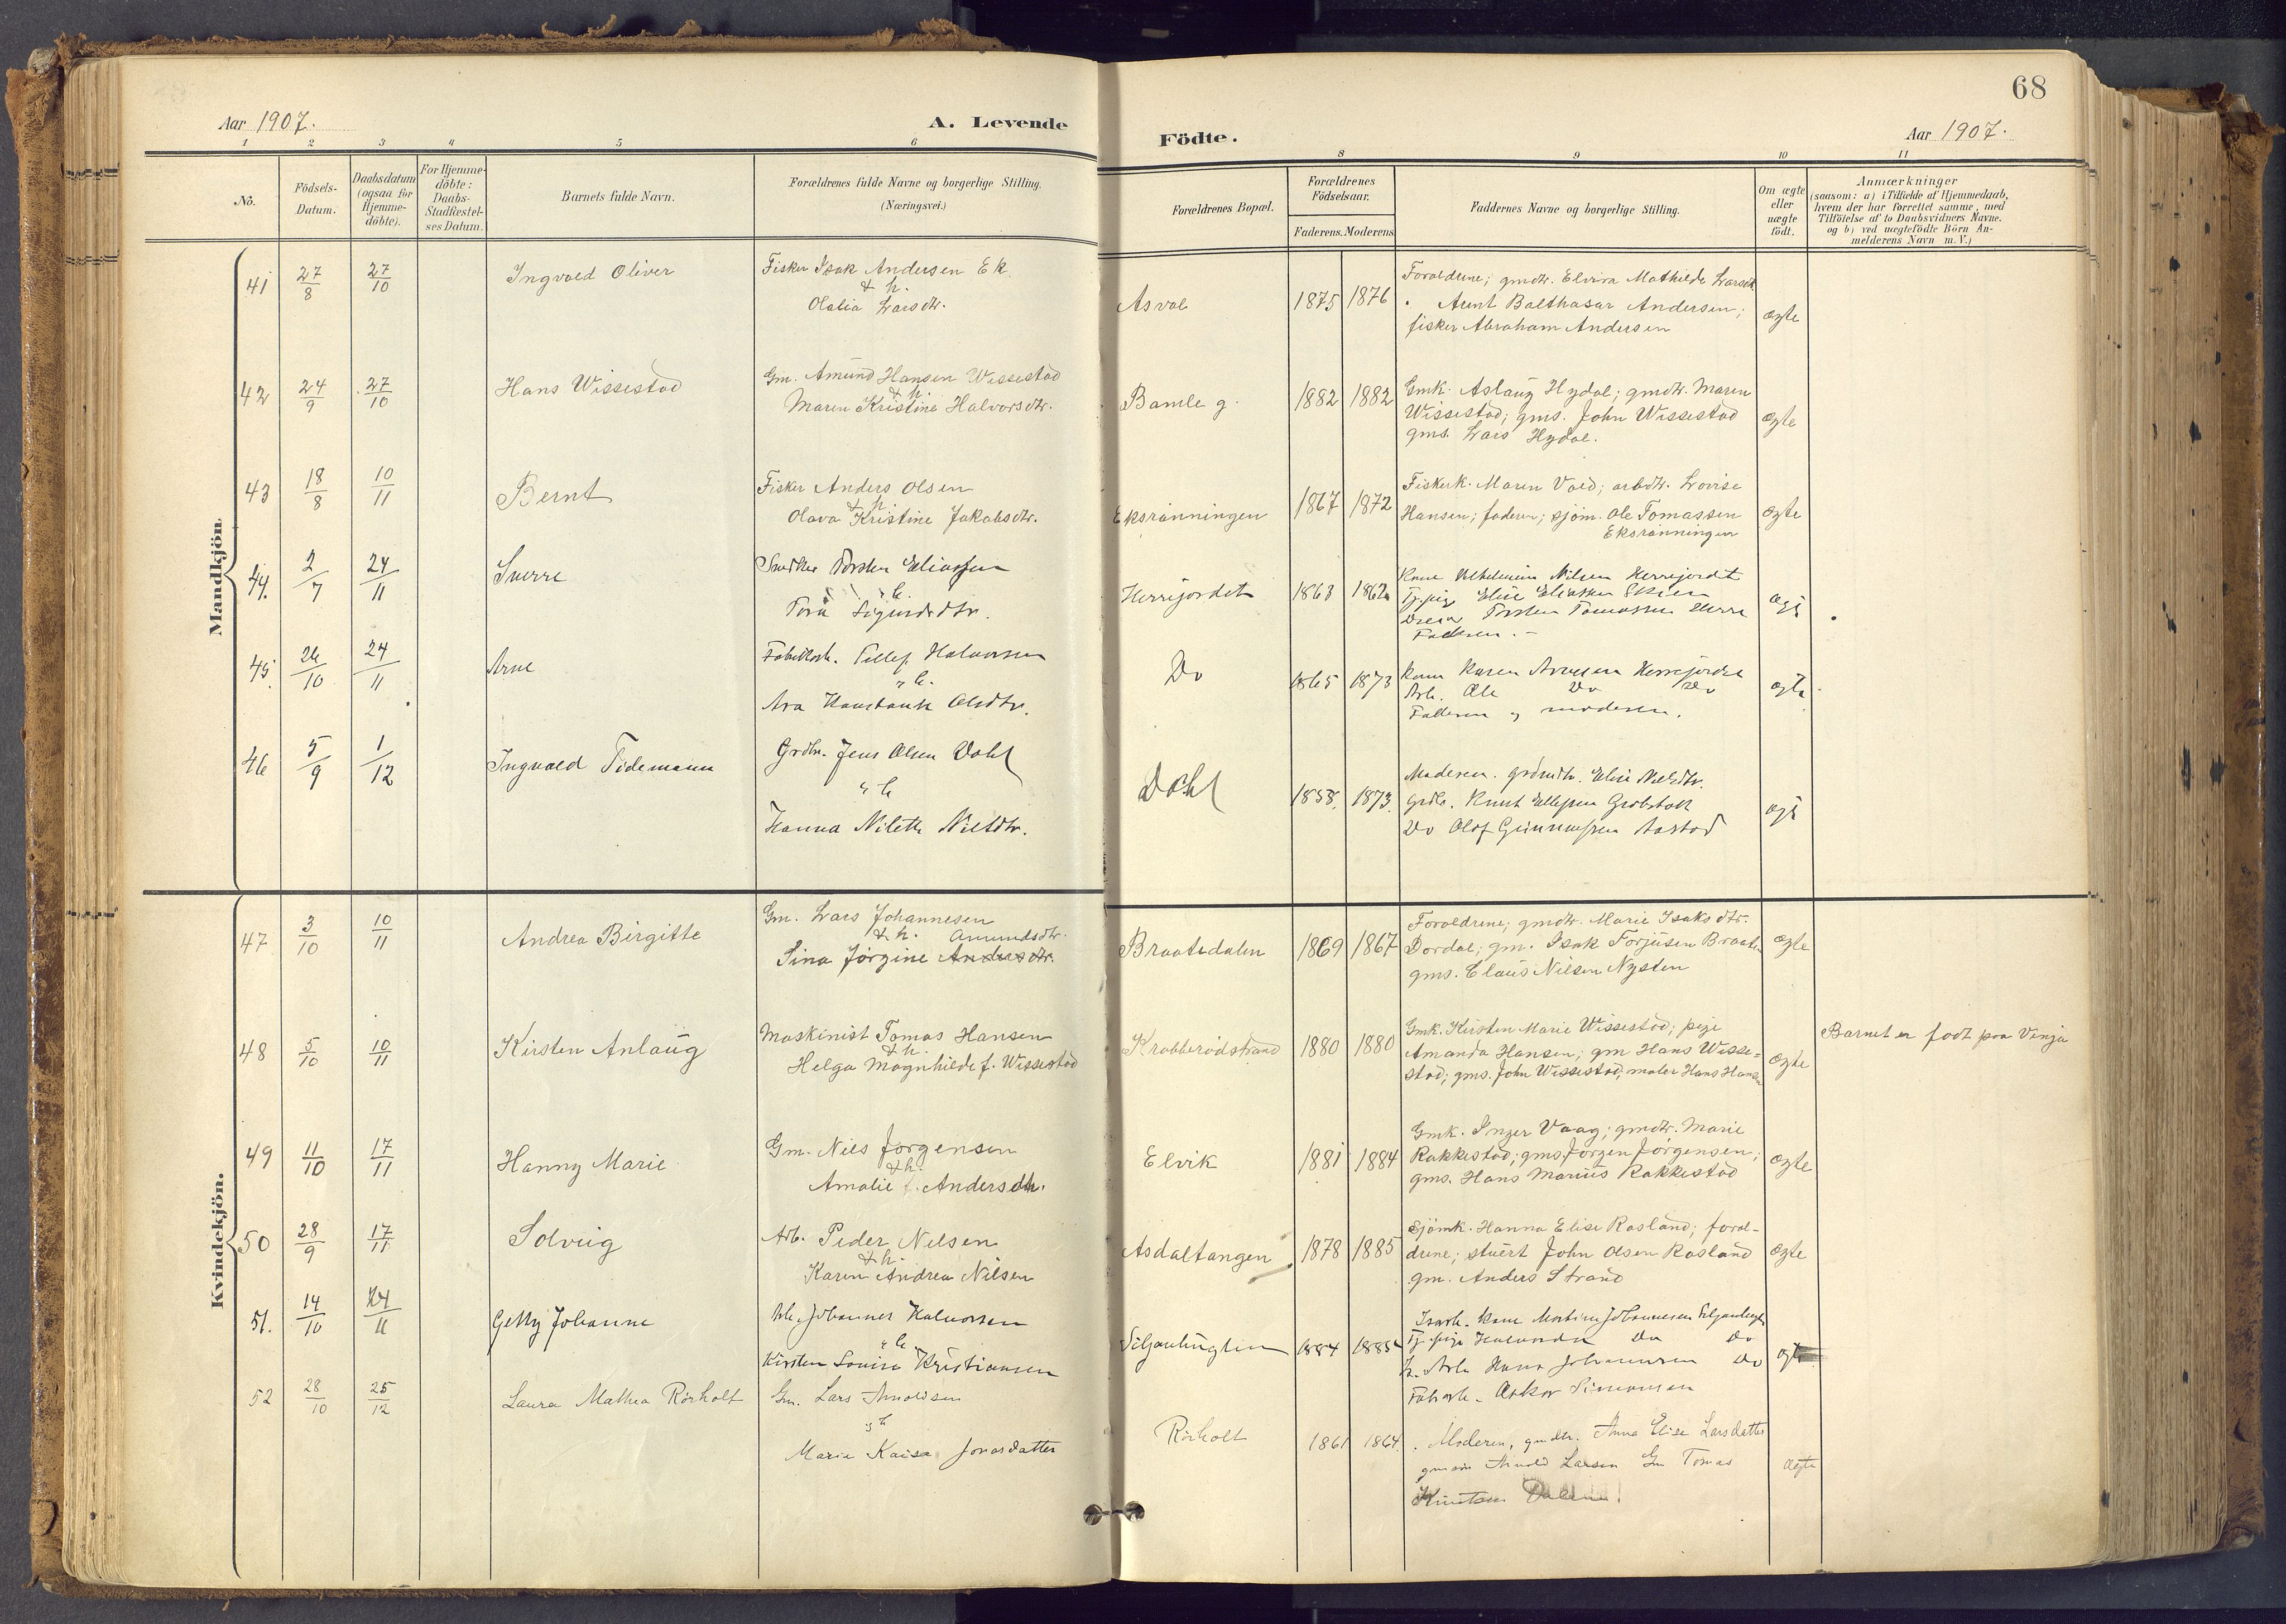 68
Aar 1907.
A. Levende
Födte.
Aar 1907.
1 2 3 4 5 6 8 9 10 11
No.
Födsels-
Datum.
Daabsdatum
(ogsaa for
Hjemme-
döbte).
For Hjemme-
döbte:
Daabs-
Stadfæstel-
ses Datum.
Barnets fulde Navn.
Forældrenes fulde Navne og borgerlige Stilling.
(Næringsvei.)
Forældrenes Bopæl.
Forældrenes
Födselsaar.
Faderens. Moderens
Faddernes Navne og borgerlige Stilling.
Om ægte
eller
uægte
födt.
Anmærkninger
(saasom: a) i Tilfælde af Hjemmedaab,
hvem der har forrettet samme, med
Tilföielse af to Daabsvidners Navne.
og b) ved uægtefödte Börn An-
melderens Navn m.V.)
Mandkjön.
41 27/8 27/10 Ingvald Oliver
Fisker Isak Andersen Ek.
& h.
Olalia Larsdtr.
Asval 1875 1876
Foraldrene; gmdtr. Elvira Mathilde Larsdt.
Arent Balthasar Andersen;
fisker Abraham Andersen
ægte
42 24/9 27/10 Hans Wissestad
Gm. Amund Hansen Wissestad
& h.
Maren Kristine Halvorsdtr.
Bamle g. 1882 1882
Gmk. Aslaug Hydal; gmdtr. Maren
Wissestad; gms. John Wissestad
gms. Lars Hydal.
ægte
43 18/8 10/11 Bernt
Fisker Anders Olsen
& h.
Olava Kristine Jakobsdtr.
Eksrånningen 1867 1872
Fiskerk. Maren Vold; arbdtr. Lovise
Hansen; faderen; sjöm. Ole Tomassen
Eksrånningen
ægte
44. 2/7 24/11 Sverre
Snedker Torsten Eliassen
& h.
Tora Sigurdsdtr.
Herrejordet 1863 1862
Kone Vilhelmine Nilsen Herrejordet
Tj.pige Elise Eliassen
Torsten Tomassen Herre
Faderen.
45. 26/10 24/11 Arne
Fabrikarb. Tellef Halvorsen
& h.
Olsdtr.
Do 1865 1873
Kone Karen Herrejordet
Arb. Ole Do Do
Faderen og moderen.
46 5/9 1/12 Ingvald Tidemann
Grdbr. Jens Olsen Dahl
& h
Hanna Nilette Nilsdtr.
Dahl 1858. 1873.
Moderen. Elise Nilsdtr.
Grdbr. Knut
Do Olaf Aastad
Kvindekjön.
47 3/10 10/11 Andrea Birgitte
Gm. Lars Johannesen
& h. Amundsdtr.
Sina Jørgine Andersdtr.
Braatedalen 1869 1867
Foraldrene; gmdtr. Marie Isaksdtr.
Dordal; gm. Isak Forjusen Braate
gms. Claus Nilsen Nysten
ægte
48 5/10 10/11 Kirsten Anlaug
Maskinist Tomas Hansen
& h.
Helga Magnhilde f. Wissestad
Krabberödstrand 1880 1880
Gmk. Kirsten Marie Wissestad; pige
Amanda Hansen; gm Hans Wisse=
stad; gms. John Wissestad; maler Hans Hansen
ægte
Barnet er født paa Vinja
49 11/10 17/11 Hanny Marie
Gm. Niels Jørgensen
& h.
Amalie f. Andersdtr.
Elvik 1881 1884
Gmk. Inger Vaag; gmdtr. Marie
Rakkestad; gms. Jørgen Jørgensen;
gms. Hans Marius Rakkestad
ægte
50 28/9 17/11 Solveig
Arb. Peder Nilsen
& h.
Karen Andrea Nilsen
Asdaltangen 1878 1885
Sjömk. Hanna Elise Rasland; foral-
drene; stuert John Olsen Rasland
gm. Anders Strand
ægte
51. 14/10 24/11 Getty Johanne
Arb. Johannes Halvorsen
& h
Kirsten Lovise Kristiansen
1884 1885
kone Martine Johannesen
Tj. pige Do Do
Arb. Hans Johannesen Do
Fabarb. Oskar Simonsen
52 28/10 25/12 Laura Mathea Rörholt
Gm. Lars Arnoldsen
& h
Marie Kaisa Jonasdatter
Rörholt 1861 1864.
Moderen, gmdtr. Anna Elise Larsdatter
gmsøn Arnold Larsen Gm Tomas
Knutsen
ægte